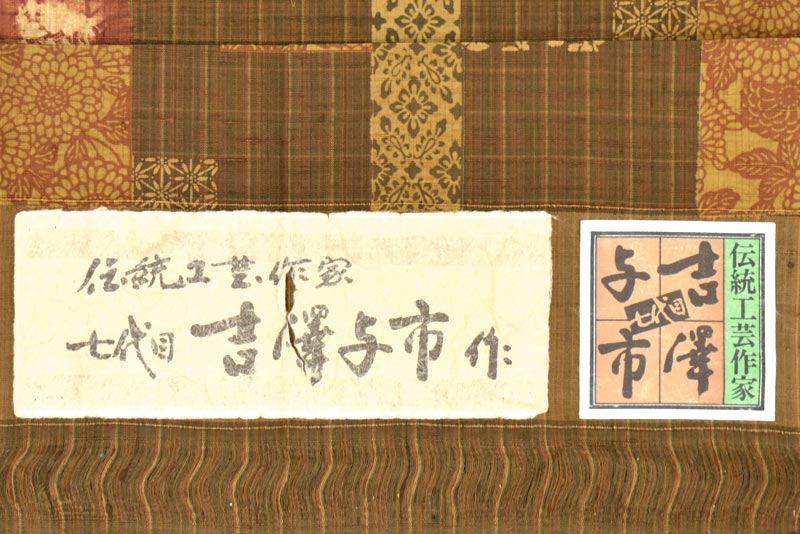 伝統工芸作家
七代目 吉澤与市 作
伝統工芸作家
吉澤
七代目
与市